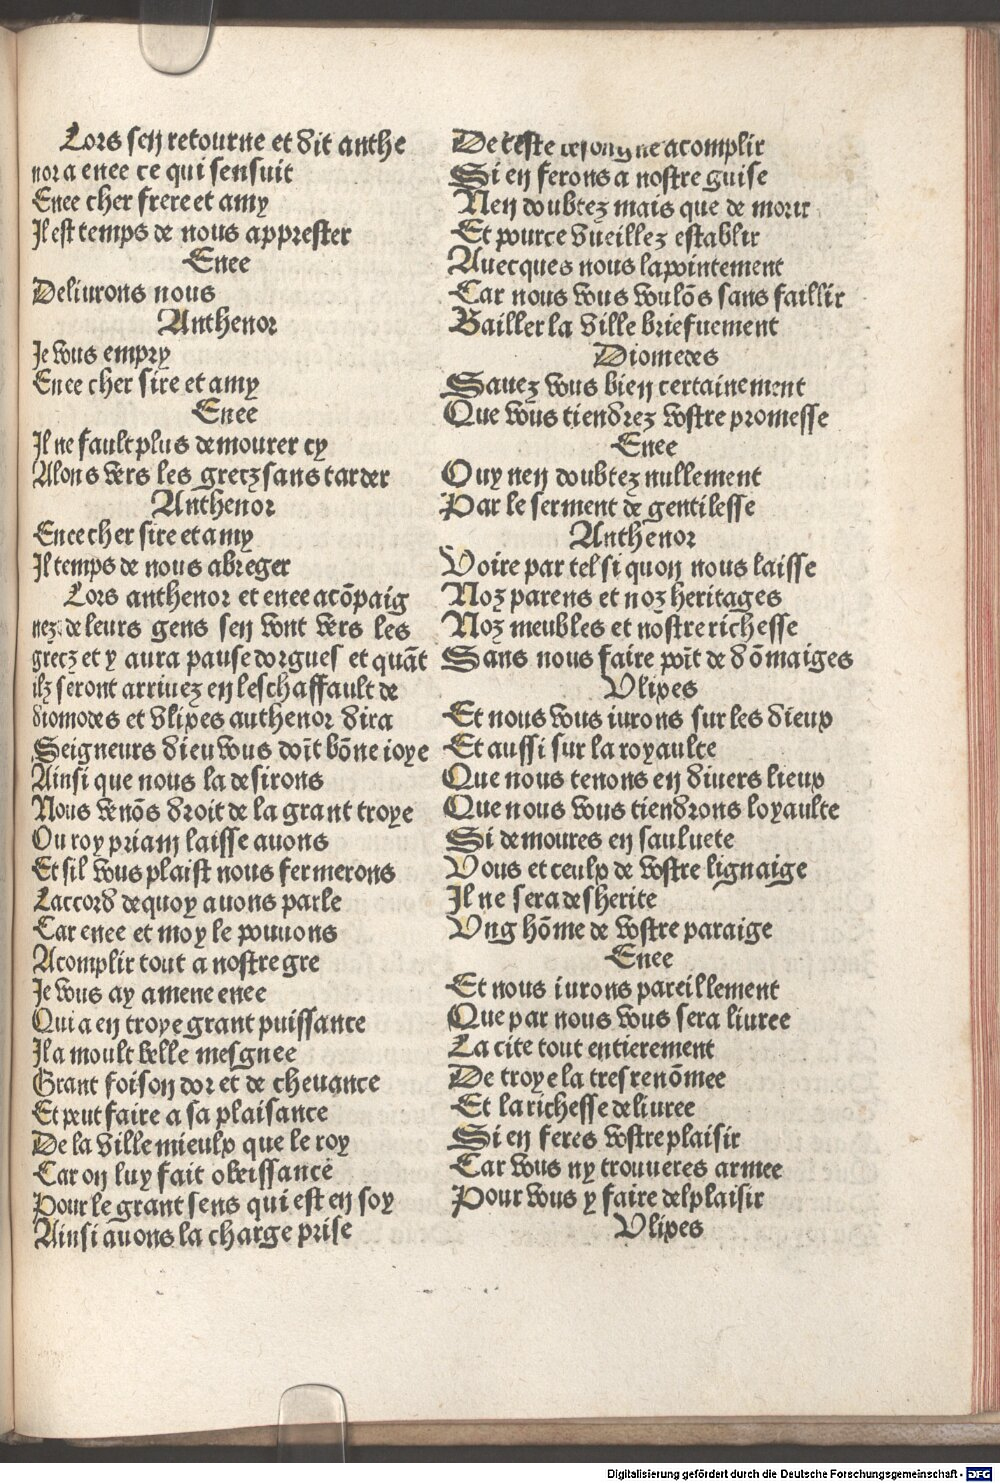 Lors sen retourne et dit anthe
nor a enee ce qui sensuit
Enee cher frere et amy
Il est temps de nous apprester
Enee
Deliurons nous
Anthenor
Je vous empry
Enee cher sire et amy
Enee
Il ne fault plus demourer cy
Alons vers les grecz sans tarder
Anthenor
Enee cher sire et amy
Il temps de nous abreger
Lors anthenor et enee acōpaig
nez de leurs gens sen vont vers les
grecz et y aura pause dorgues et quāt
ilz seront arriuez en leschaffault de
diomodes et vlixes anthenor dira
Seigneurs dieu vous doīt bōne ioye
Ainsi que nous la desirons
Nous venōs droit de la grant troye
Ou roy priam laisse auons
Et sil vous plaist nous fermerons
Laccord dequoy auons parle
Car enee et moy le pouuons
Acomplir tout a nostre gre
Je vous ay amene enee
Qui a en troye grant puissance
Il a moult belle mesgnee
Grant foison dor et de cheuance
Et peut faire a sa plaisance
De la ville mieulx que le roy
Car on luy fait obeissance
Pour le grant sens qui est en soy
Ainsi auons la charge prise
De ceste besongne acomplir
Si en ferons a nostre guise
Nen doubtez mais que de morir
Et pource vueillez establir
Auecques nous lapointement
Car nous vous voulōs sans faillir
Bailler la ville briefuement
Diomedes
Sauez vous bien certainement
Que vous tiendrez vostre promesse
Enee
Ouy nen doubtez nullement
Par le serment de gentilesse
Anthenor
Voire par tel si quon nous laisse
Noz parens et noz heritages
Noz meubles et nostre richesse
Sans nous faire poīt de dōmaiges
Vlixes
Et nous vous iurons sur les dieux
Et aussi sur la royaulte
Que nous tenons en diuers lieux
Que nous vous tiendrons loyaulte
Si demoures en sauluete
Vous et ceulx de vostre lignaige
Il ne sera desherite
Vng hōme de vostre paraige
Enee
Et nous iurons pareillement
Que par nous vous sera liuree
La cite tout entierement
De troye la tres renōmee
Et la richesse deliuree
Si en feres vostre plaisir
Car vous ny trouueres armee
Pour vous y faire desplaisir
Vlixes
Digitalisierung gefördert durch die Deutsche Forschungsgemeinschaft - DFG